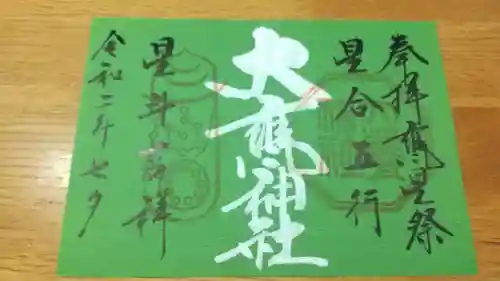 奉拝 甕星祭
星合五行
大甕神社
星斗 祥
令和二年七夕